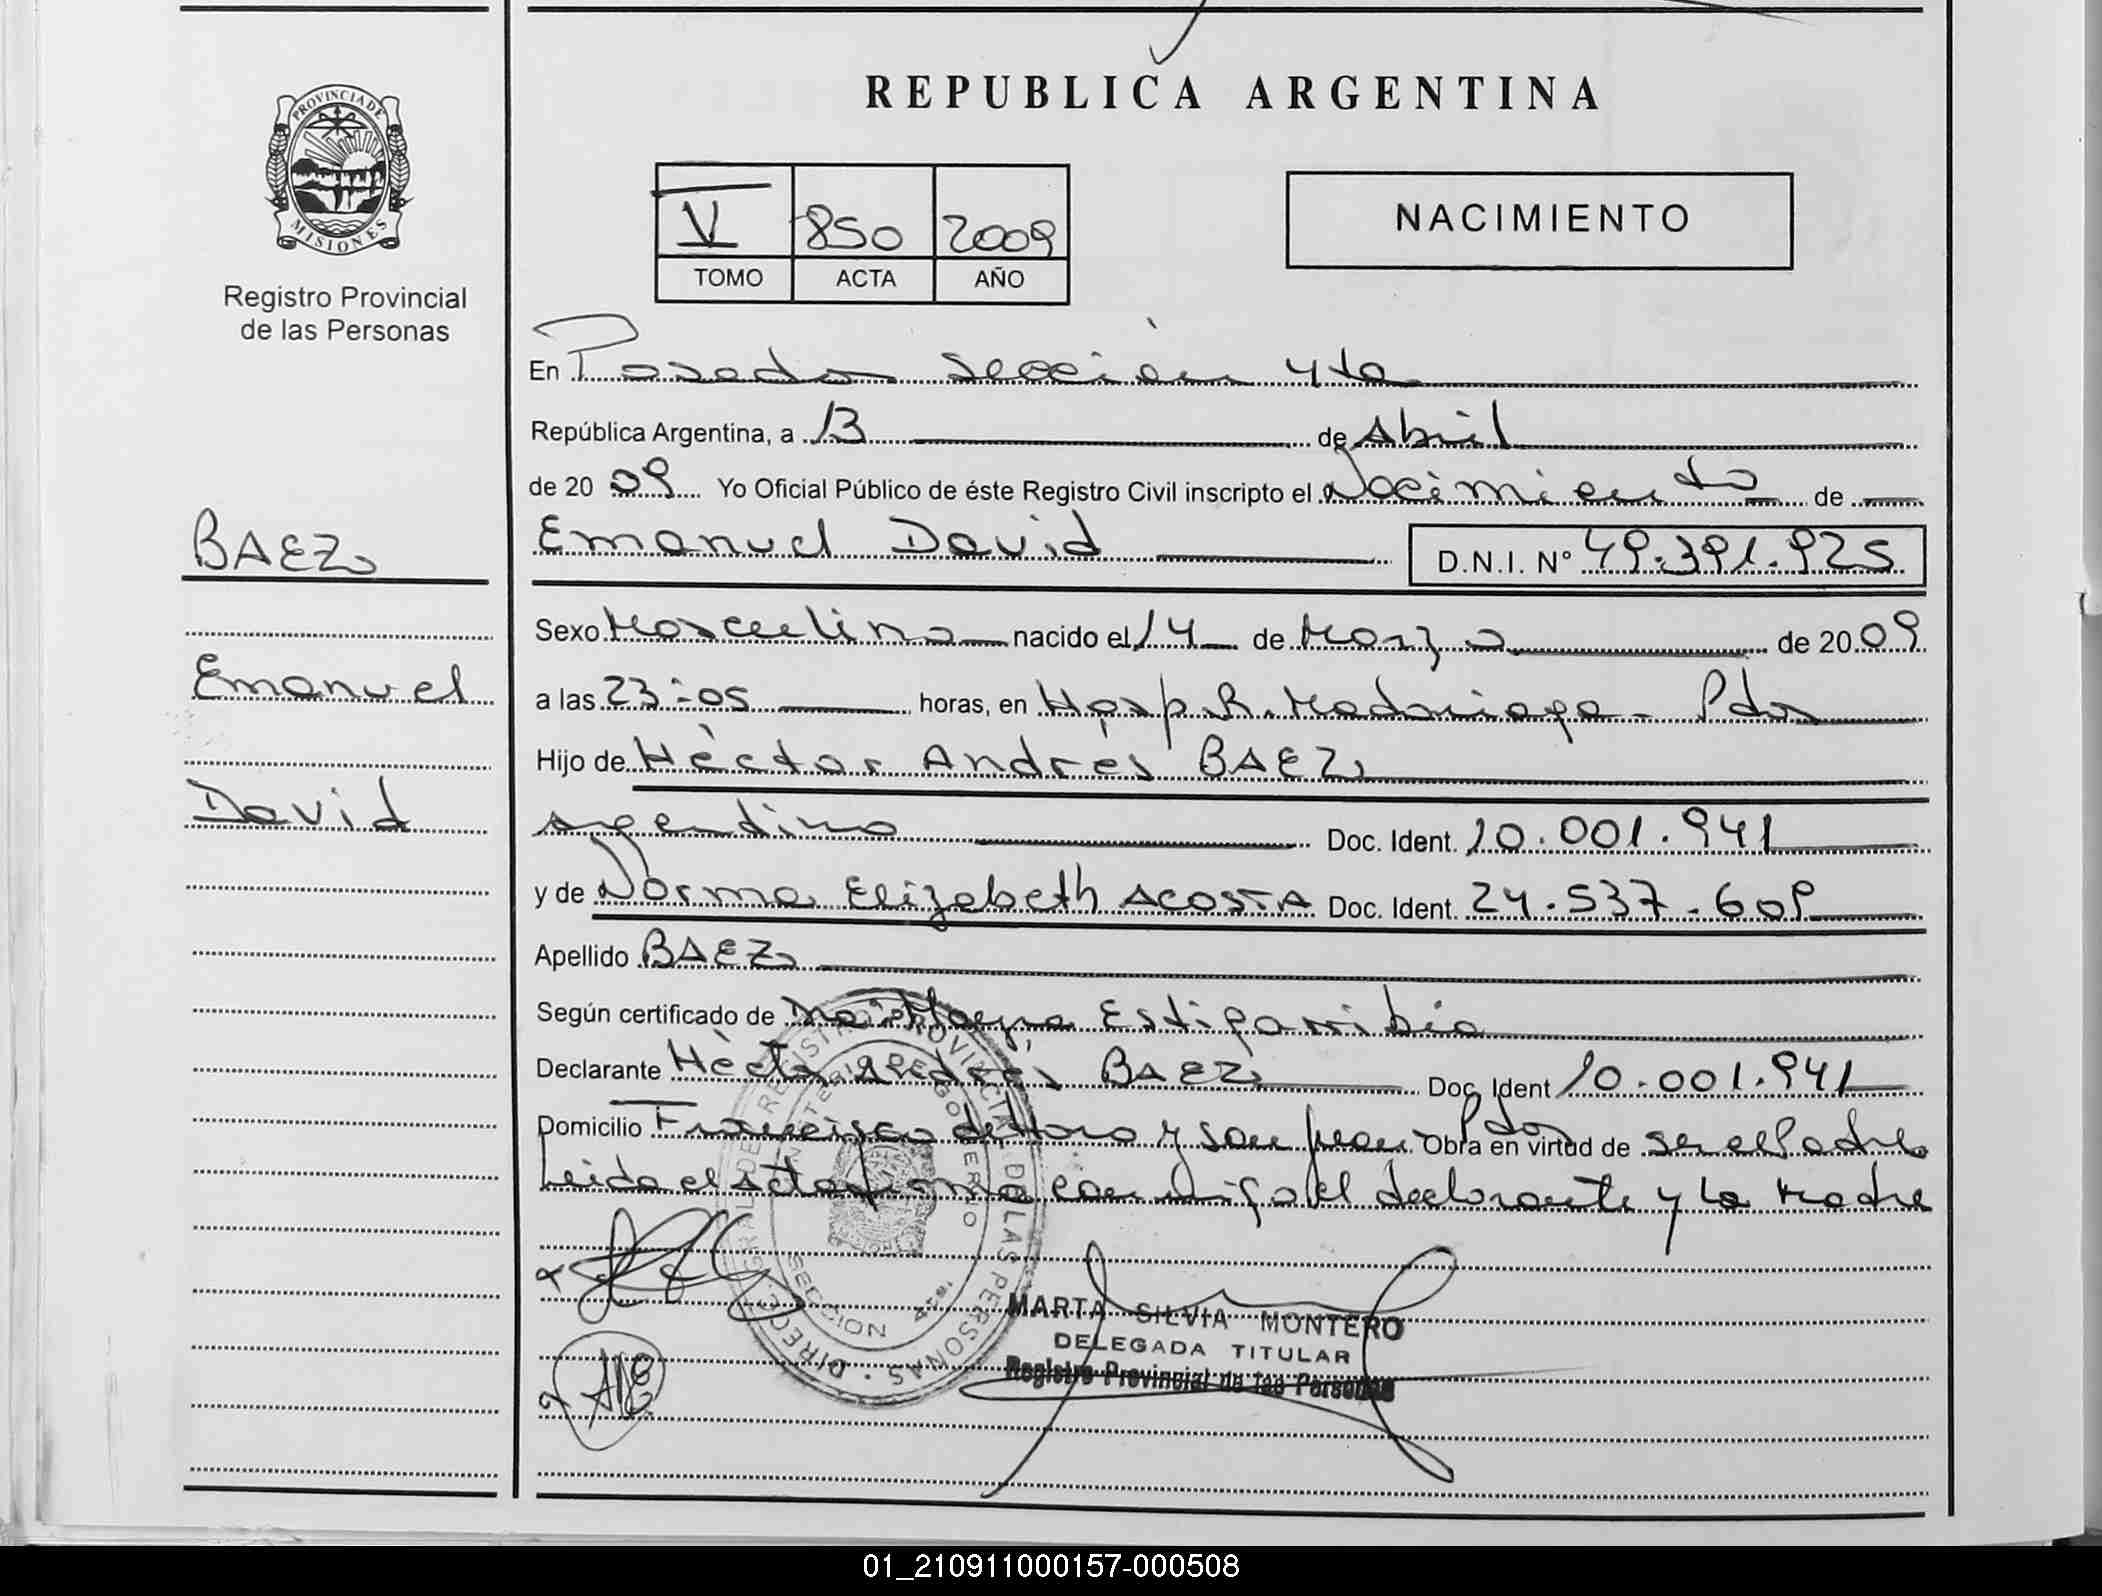 REPUBLICA ARGENTINA
PROVINCIA DE
MISIONES
Registro Provincial
de las Personas
V 850 2009
TOMO ACTA AÑO
NACIMIENTO
En Posadas sección 4ta
República Argentina, a 13 de Abril
de 2009 Yo Oficial Público de éste Registro Civil inscripto el Nacimiento de
Emanuel David D.N.I. N° 49.391.925
BAEZ
Emanuel
David
Sexo Masculino nacido el 14 de Marzo de 2009
a las 23:05 horas, en Hosp. R. Madariaga - Pdas
Hijo de Héctor Andrés BAEZ
argentino Doc. Ident. 10.001.941
y de Norma Elizabeth ACOSTA Doc. Ident. 24.537.609
Apellido BAEZ
Según certificado de Dra. Mayra Estigarribia
Declarante Héctor Andrés BAEZ Doc. Ident 10.001.941
Domicilio Francisco de Haro y San Juan Pdas Obra en virtud de ser el Padre
Leida el acta firma conmigo el declarante y la Madre
DIRECC. GRAL DE REGISTRO PROVINCIAL DE LAS PERSONAS
MINISTERIO DE GOBIERNO
SECCION 4ta.
MARTA SILVIA MONTERO
DELEGADA TITULAR
Registro Provincial de las Personas
01_210911000157-000508